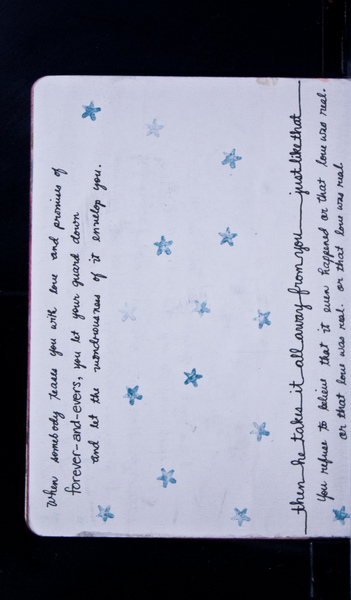 When somebody teases you with love and promises of
forever-and-evers, you let your guard down
and let the wondrousness of it envelop you.
then he takes it all away from you just like that
You refuse to believe that it even happened or that love was real.
or that love was real. or that love was real.